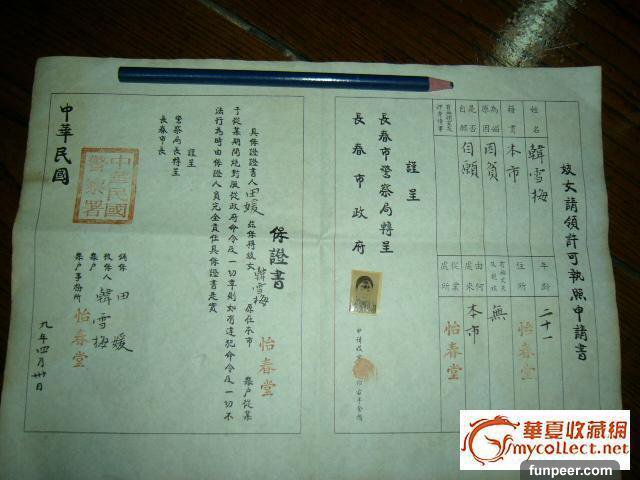 妓女請領許可執照申請書
姓名 韓雪梅 年齡 二十一
籍貫 本市 住所 怡春堂
為娼原因 因貧 有無丈夫及親族 無
是否自願 自願 由何處來 本市
從業處所 怡春堂
謹呈
長春市警察局轉呈
長春市政府
保證書
具保證書人田媛茲保得妓女韓雪梅原住本市 樂户從業怡春堂
于從業期間絶對服從政府命令及一切章則如有違犯命令及一切不
法行為時由保證人負完全責任具保證書是實
謹呈
警察局長轉呈
長春市長
鋪保 田媛
被保人 韓雪梅
樂户
樂户事務所 怡春堂
中華民國
九年四月卅日
中華民國警察署
華夏收藏網
mycollect.net
funpeer.com